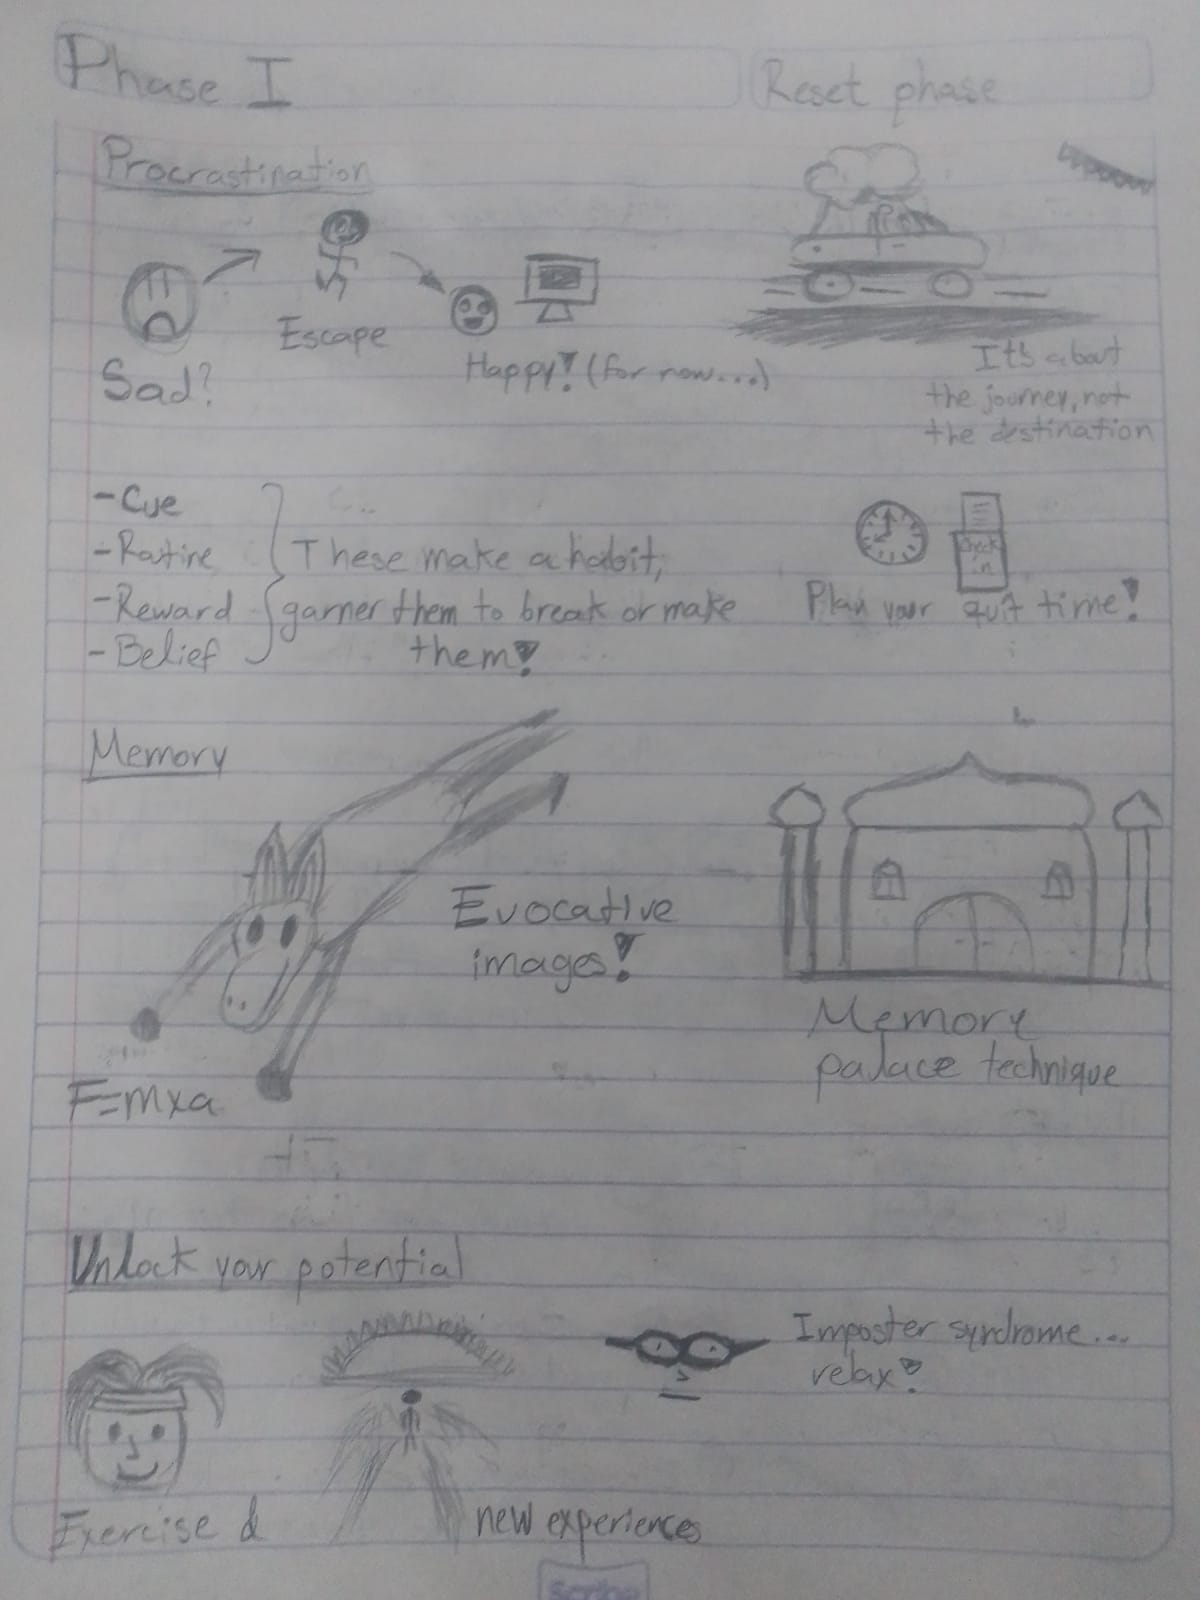 Phase I
Reset phase
Procrastination
Sad?
Escape
Happy! (for now...)
It's about
the journey, not
the destination
- Cue
- Rutine
- Reward
- Belief
These make a habit,
garner them to break or make
them!
check
in
Plan your quit time!
Memory
Evocative
images!
F=mxa
Memory
palace technique
Unlock your potential
Exercise &
new experiences
Imposter syndrome...
relax!
Scribe